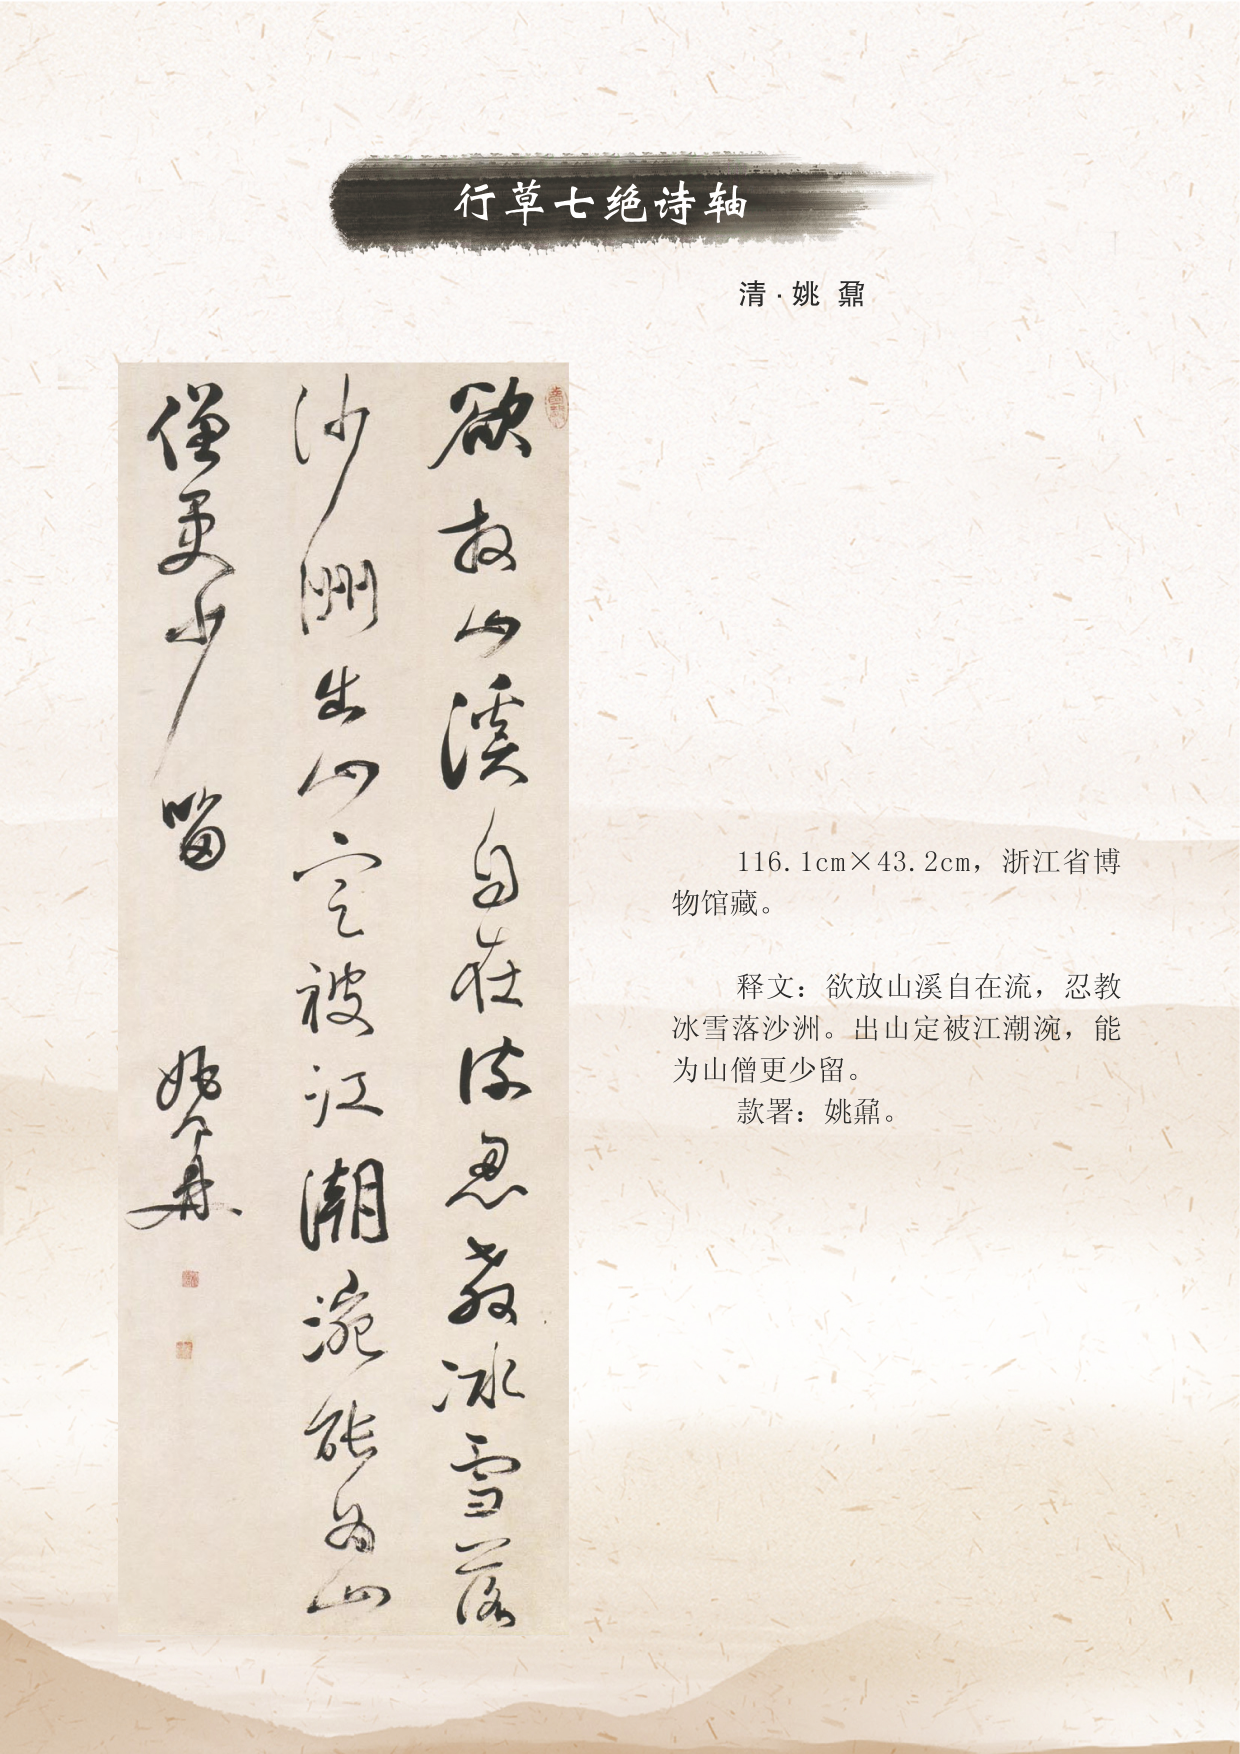 行草七绝诗轴
清·姚 鼐
欲放山溪自在流忍教冰雪落
沙洲出山定被江潮涴能为山
僧更少留
姚鼐
116.1cm×43.2cm，浙江省博
物馆藏。
释文：欲放山溪自在流，忍教
冰雪落沙洲。出山定被江潮涴，能
为山僧更少留。
款署：姚鼐。